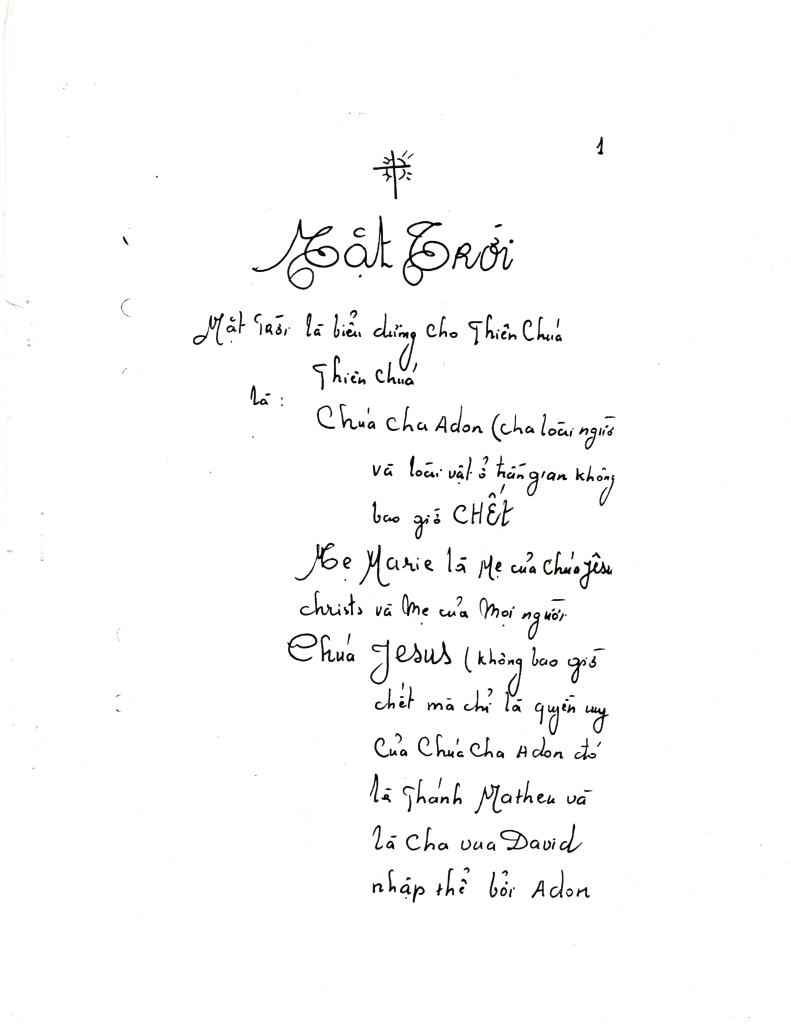 1
Mặt Trời
Mặt Trời là biểu dừng cho Thiên Chúa
Thiên Chúa
là :
Chúa Cha Adon (cha loài người
và loài vật ở trần gian không
bao giờ CHẾT
Mẹ Marie là Mẹ của Chúa Jêsu
christs và Mẹ của Mọi người
Chúa Jesus (không bao giờ
chết mà chỉ là quyền uy
Của Chúa Cha Adon đó
là Thánh Matheu và
là Cha vua David
nhập thể bởi Adon